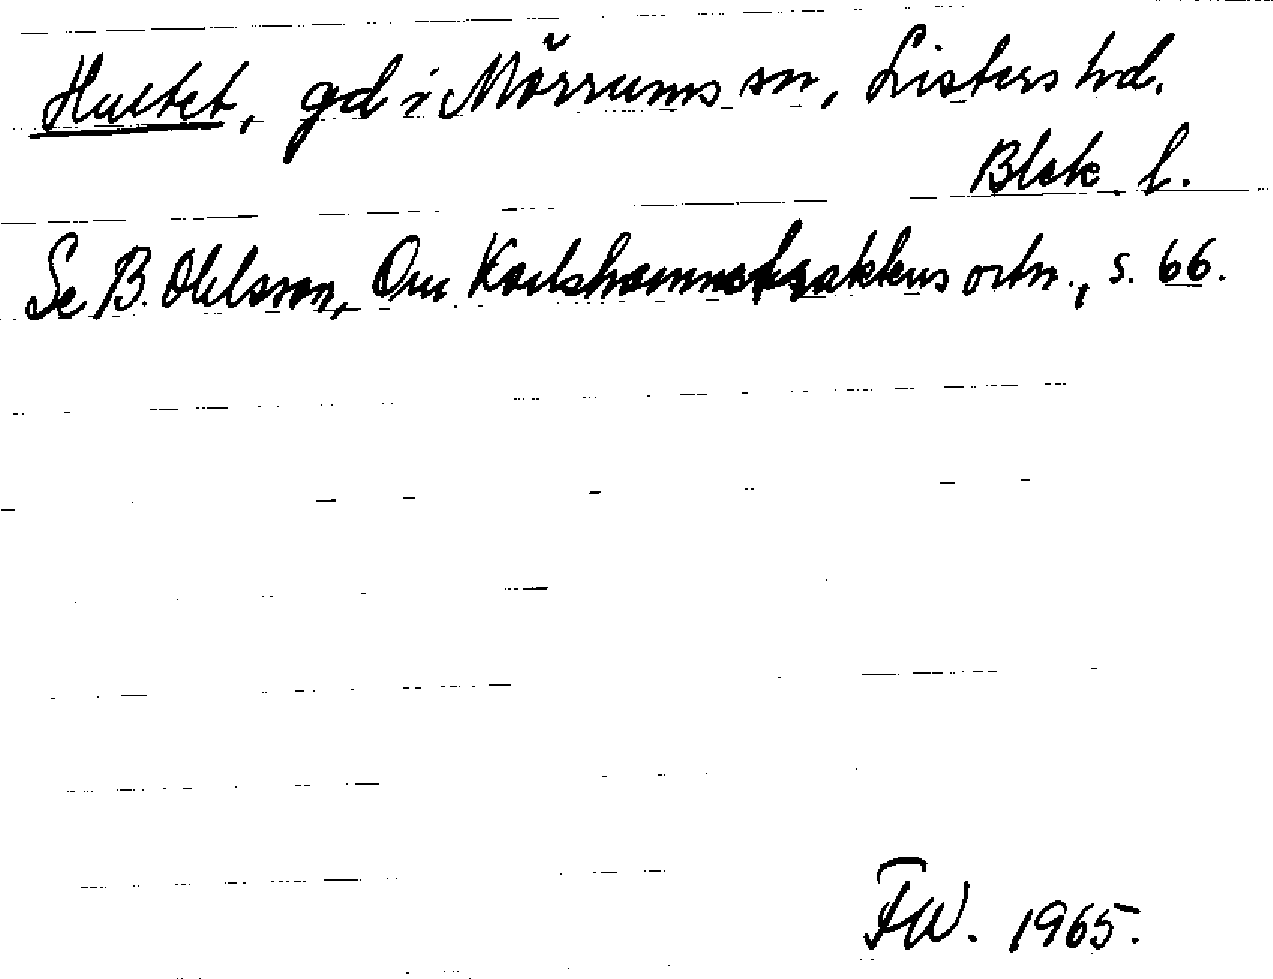 Hultet, gd i Mörrums sn, Listers hd.
Blek. l.
Se B. Ohlsson, Om Karlshamnstraktens ortn., s. 66.
FW. 1965.